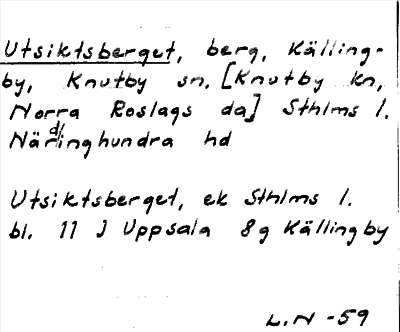 Utsiktsberget, berg, Källing-
by, Knutby sn, [Knutby kn,
Norra Roslags da] Sthlms l.
Närdinghundra hd
Utsiktsberget, ek Sthlms l.
bl. 11 J Uppsala 8g Källingby
L.N -59